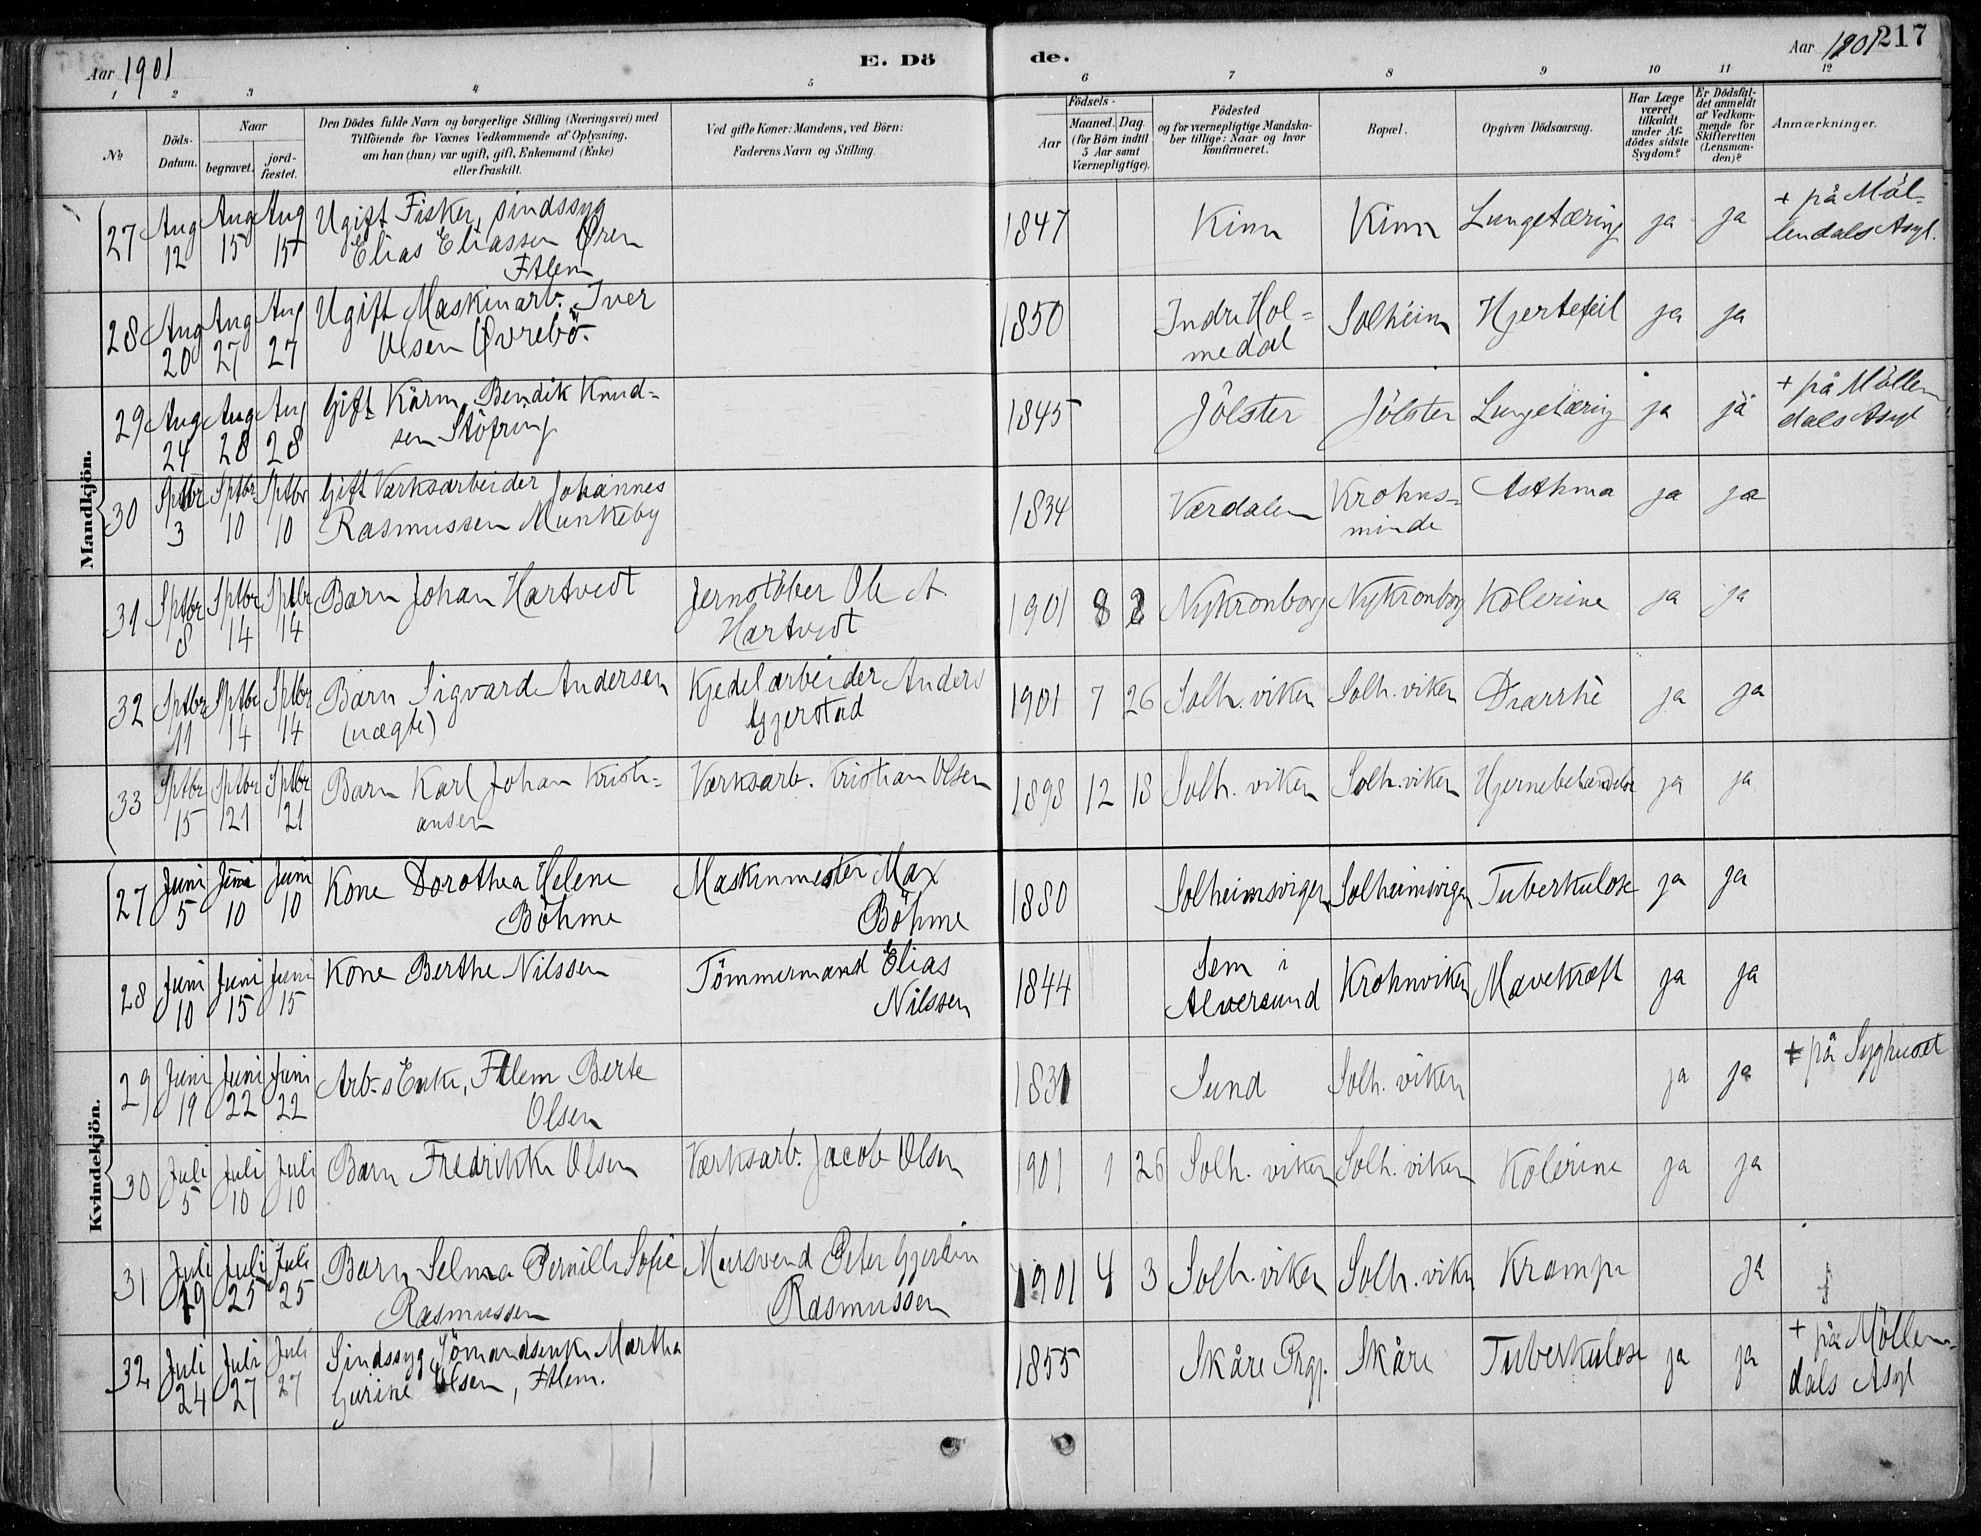 Aar 1901
E. Dö
de.
Aar 1901
217
1 2 3 4 5 6 7 8 9 10 11 12
№
Döds-Datum.
Naar
begravet.
jord-fæstet.
Den Dödes fulde Navn og borgerlige Stilling (Næringsvei) med
Tilföiende for Voxnes Vedkommende af Oplysning,
om han (hun) var ugift, gift, Enkemand (Enke)
eller fraskilt.
Ved gifte Koner: Mandens, ved Börn:
Faderens Navn og Stilling.
Födsels-
Aar
Maaned. Dag.
(for Börn indtil
5 Aar samt
Værnepligtige).
Födested
og for værnepligtige Mandska-
ber tillige: Naar og hvor
konfirmeret.
Bopæl.
Opgiven Dödsaarsag.
Har Læge
været
tilkaldt
under Af-
dödes sidste
Sygdom?
Er Dödsfal-
det anmeldt
af Vedkom-
mende for
Skifteretten
(Lensman-
den)?
Anmærkninger.
Mandkjön.
27 Aug 12 Aug 15 Aug 15 Ugift Fisker, sindssyg 1847 Kinn Kinn Lungetæring ja ja + på Möl-
Elias Eliassen Øren lendals Asyl.
Ftlem
28 Aug 20 Aug 27 Aug 27 Ugift Maskinarb. Iver 1850 Indre Hol- Solheim Hjertefeil ja ja
Olsen Øvrebö. medal
29 Aug 24 Aug 28 Aug 28 Gift Kårm. Bendik Knud- 1845 Jölster Jölster Lungetæring ja ja + på Möllen
sen Stöfring dals Asyl
30 Sptbr 3 Sptbr 10 Sptbr 10 Gift Værksarbeider Johannes 1834 Værdalen Krohns- Asthma ja ja
Rasmussen Munkeby minde
31 Sptbr 8 Sptbr 14 Sptbr 14 Barn Johan Hartvedt Jernstöber Ole A 1901 8 2 Nykronborg Nykronborg Kolerine ja ja
Hartvedt
32 Sptbr 11 Sptbr 14 Sptbr 14 Barn Sigvard Andersen Kjedelarbeider Anders 1901 7 26 Solh. viken Solh. viken Diarrhè ja ja
(uægte) Gjerstad
33 Sptbr 15 Sptbr 21 Sptbr 21 Barn Karl Johan Kristi- Værksarb. Kristian Olsen 1898 12 18 Solh. viken Solh. viken Hjernebetændelse ja ja
ansen
Kvindekjön.
27 Juni 5 Juni 10 Juni 10 Kone Dorothea Helene Maskinmester Max 1880 Solheimsvigen Solheimsvigen Tuberkulose ja ja
Böhme Böhme
28 Juni 10 Juni 15 Juni 15 Kone Berthe Nilssen Tömmermand Elias 1844 Sem i Krohnviken Mavekræft ja ja
Nilssen Alversund
29 Juni 19 Juni 22 Juni 22 Arb.s Enke, Ftlem Berte 1831 Sund Solh. viken ja ja + på Syghuset
Olsen
30 Juli 5 Juli 10 Juli 10 Barn Fredrikke Olsen Værksarb. Jacob Olsen 1901 1 26 Solh. viken Solh. viken Kolerine ja ja
31 Juli 19 Juli 25 Juli 25 Barn Selma Pernille Sofie Mursvend Peter Gjertin 1901 4 3 Solh. viken Solh. viken Krampe ja
Rasmussen Rasmussen
32 Juli 24 Juli 27 Juli 27 Sindssyg Sömandsenke Martha 1855 Skåre Prgj. Skåre Tuberkulose ja ja + på Möllen-
Gurine Olsen, Ftlem. dals Asyl